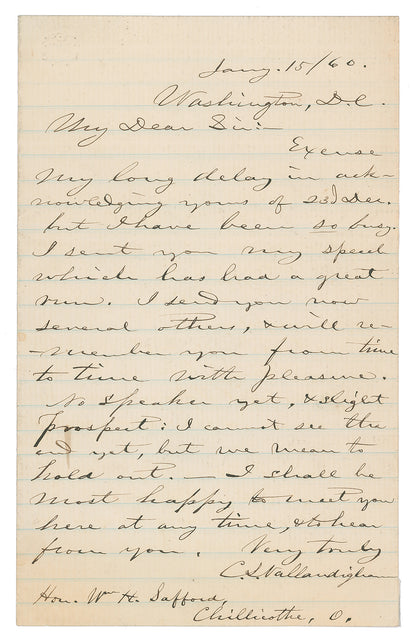 Jany. 15/60.
Washington, D.C.
My Dear Sir:-
Excuse
my long delay in ack-
nowledging yours of 23d Dec.
but I have been so busy.
I sent you my speech
which has had a great
run. I send you now
several others, & will re-
-member you from time
to time with pleasure.
No speaker yet, & slight
prospect: I cannot see the
end yet, but we mean to
hold out. - I shall be
most happy to meet you
here at any time, & to hear
from you. Very truly
C. L. Vallandigham
Hon. Wm H. Safford,
Chillicothe, O.